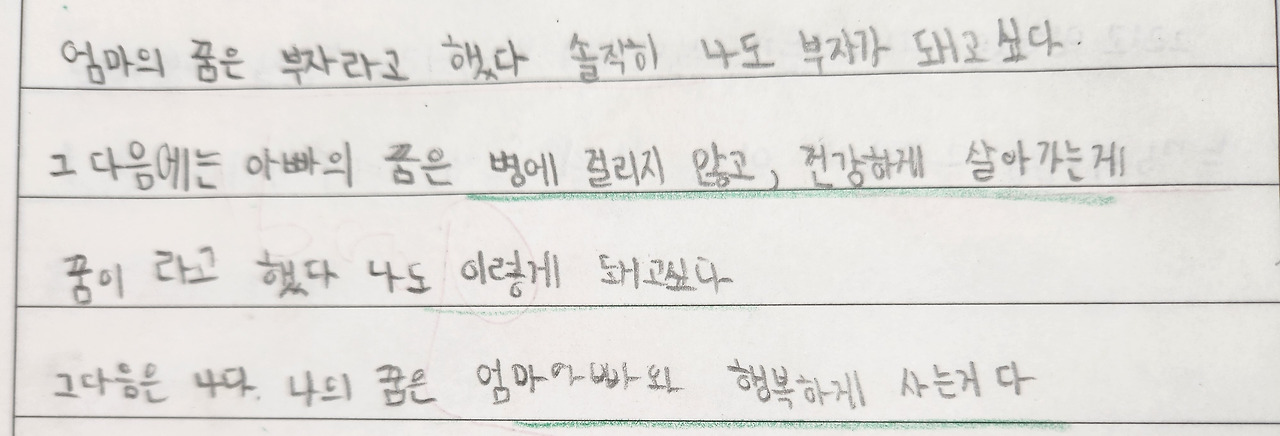 엄마의 꿈은 부자라고 했다 솔직히 나도 부자가 돼고싶다.
그 다음에는 아빠의 꿈은 병에 걸리지 않고, 건강하게 살아가는게
꿈이 라고 했다 나도 이렇게 돼고싶다
그다음은 나다. 나의 꿈은 엄마아빠와 행복하게 사는거 다